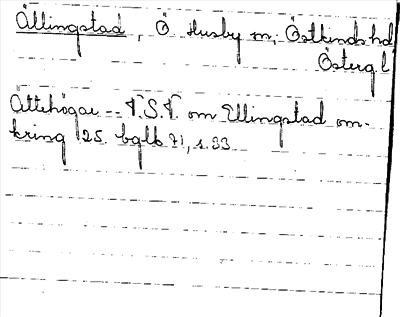 Ällingstad, Ö Husby sn, Östkinds hd
Österg.l
Ättehögar - N.S.V. om Ellingstad om-
kring 25. bglb 71, s. 33